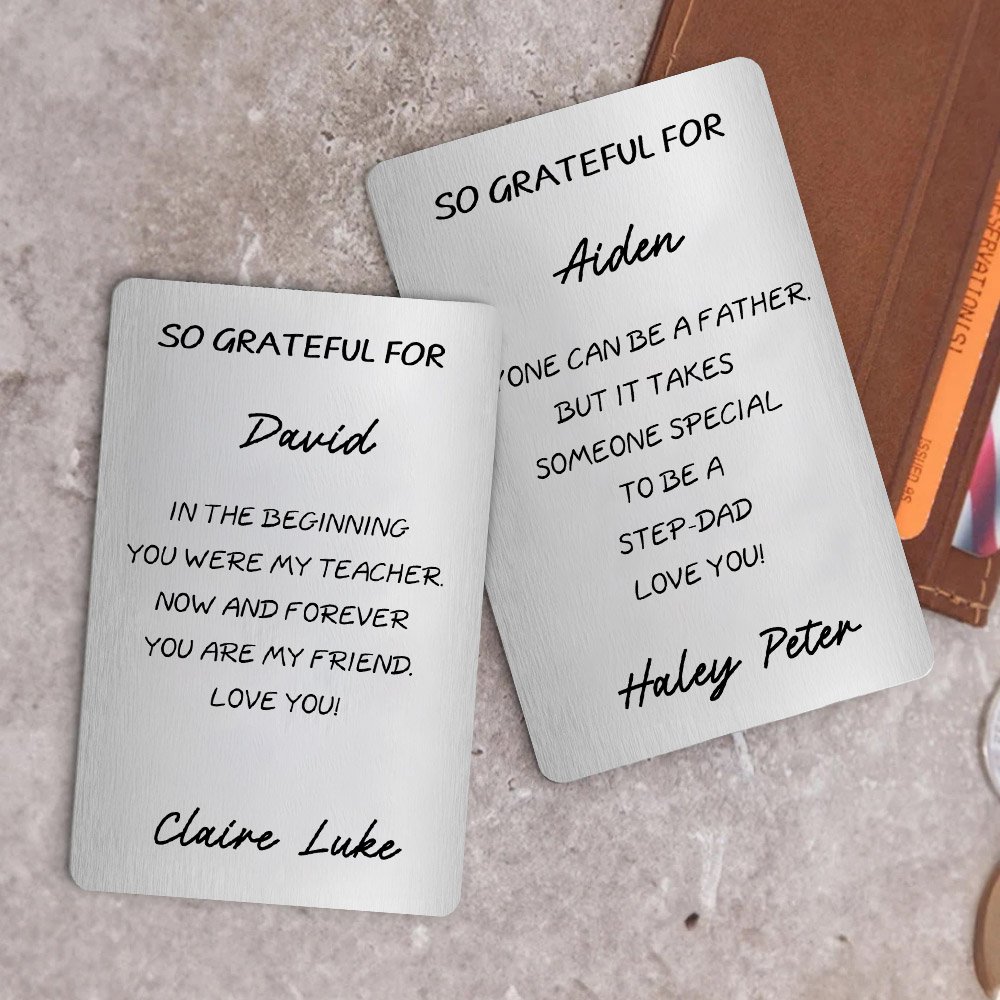 SO GRATEFUL FOR
David
IN THE BEGINNING
YOU WERE MY TEACHER.
NOW AND FOREVER
YOU ARE MY FRIEND.
LOVE YOU!
Claire Luke
SO GRATEFUL FOR
Aiden
YONE CAN BE A FATHER.
BUT IT TAKES
SOMEONE SPECIAL
TO BE A
STEP-DAD
LOVE YOU!
Haley Peter
ISSUED 9S